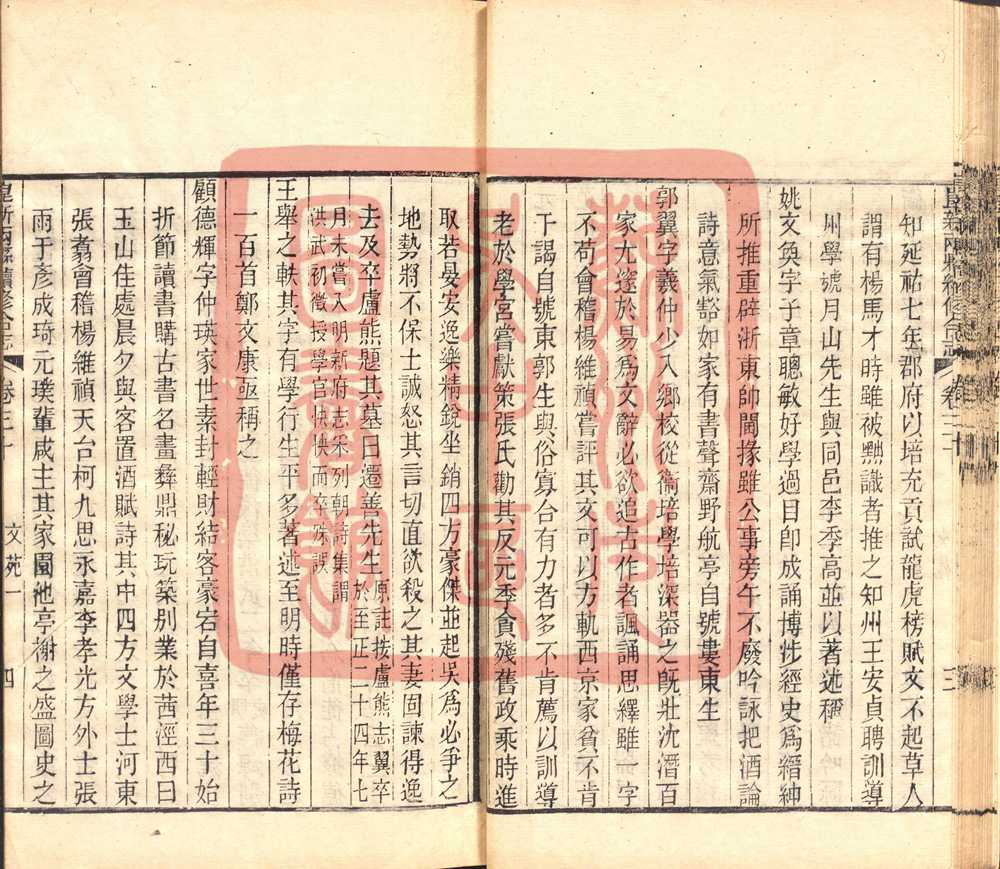 知延祐七年郡府以培充貢試龍虎榜賦文不起草人
謂有楊馬才時雖被黜識者推之知州王安貞聘訓導
州學號月山先生與同邑李季高並以著述稱
姚文奐字子章聰敏好學過目卽成誦博涉經史爲縉紳
所推重辟浙東帥閫掾雖公事旁午不廢吟詠把酒論
詩意氣豁如家有書聲齋野航亭自號婁東生
郭翼字義仲少入鄉校從衞培學培深器之旣壯沈潛百
家尤邃於易爲文辭必欲追古作者諷誦思繹雖一字
不苟會稽楊維禎嘗評其文可以方軌西京家貧不肯
干謁自號東郭生與俗寡合有力者多不肯薦以訓導
老於學宮嘗獻策張氏勸其反元季貪殘舊政乘時進
取若晏安逸樂精銳坐銷四方豪傑並起吳爲必爭之
地勢將不保士誠怒其言切直欲殺之其妻固諫得逸
去及卒盧熊題其墓曰遷善先生原註按盧熊志翼卒於至正二十四年七
月未嘗入明新府志釆列朝詩集謂洪武初徵授學官怏怏而卒殊誤
王舉之軼其字有學行生平多著述至明時僅存梅花詩
一百首鄭文康亟稱之
顧德輝字仲瑛家世素封輕財結客豪宕自喜年三十始
折節讀書購古書名畫彝鼎秘玩築別業於茜涇西曰
玉山佳處晨夕與客置酒賦詩其中四方文學士河東
張翥會稽楊維禎天台柯九思永嘉李孝光方外士張
雨于彥成琦元璞輩咸主其家園池亭榭之盛圖史之
卷三十
三
卷三十
文苑一
四